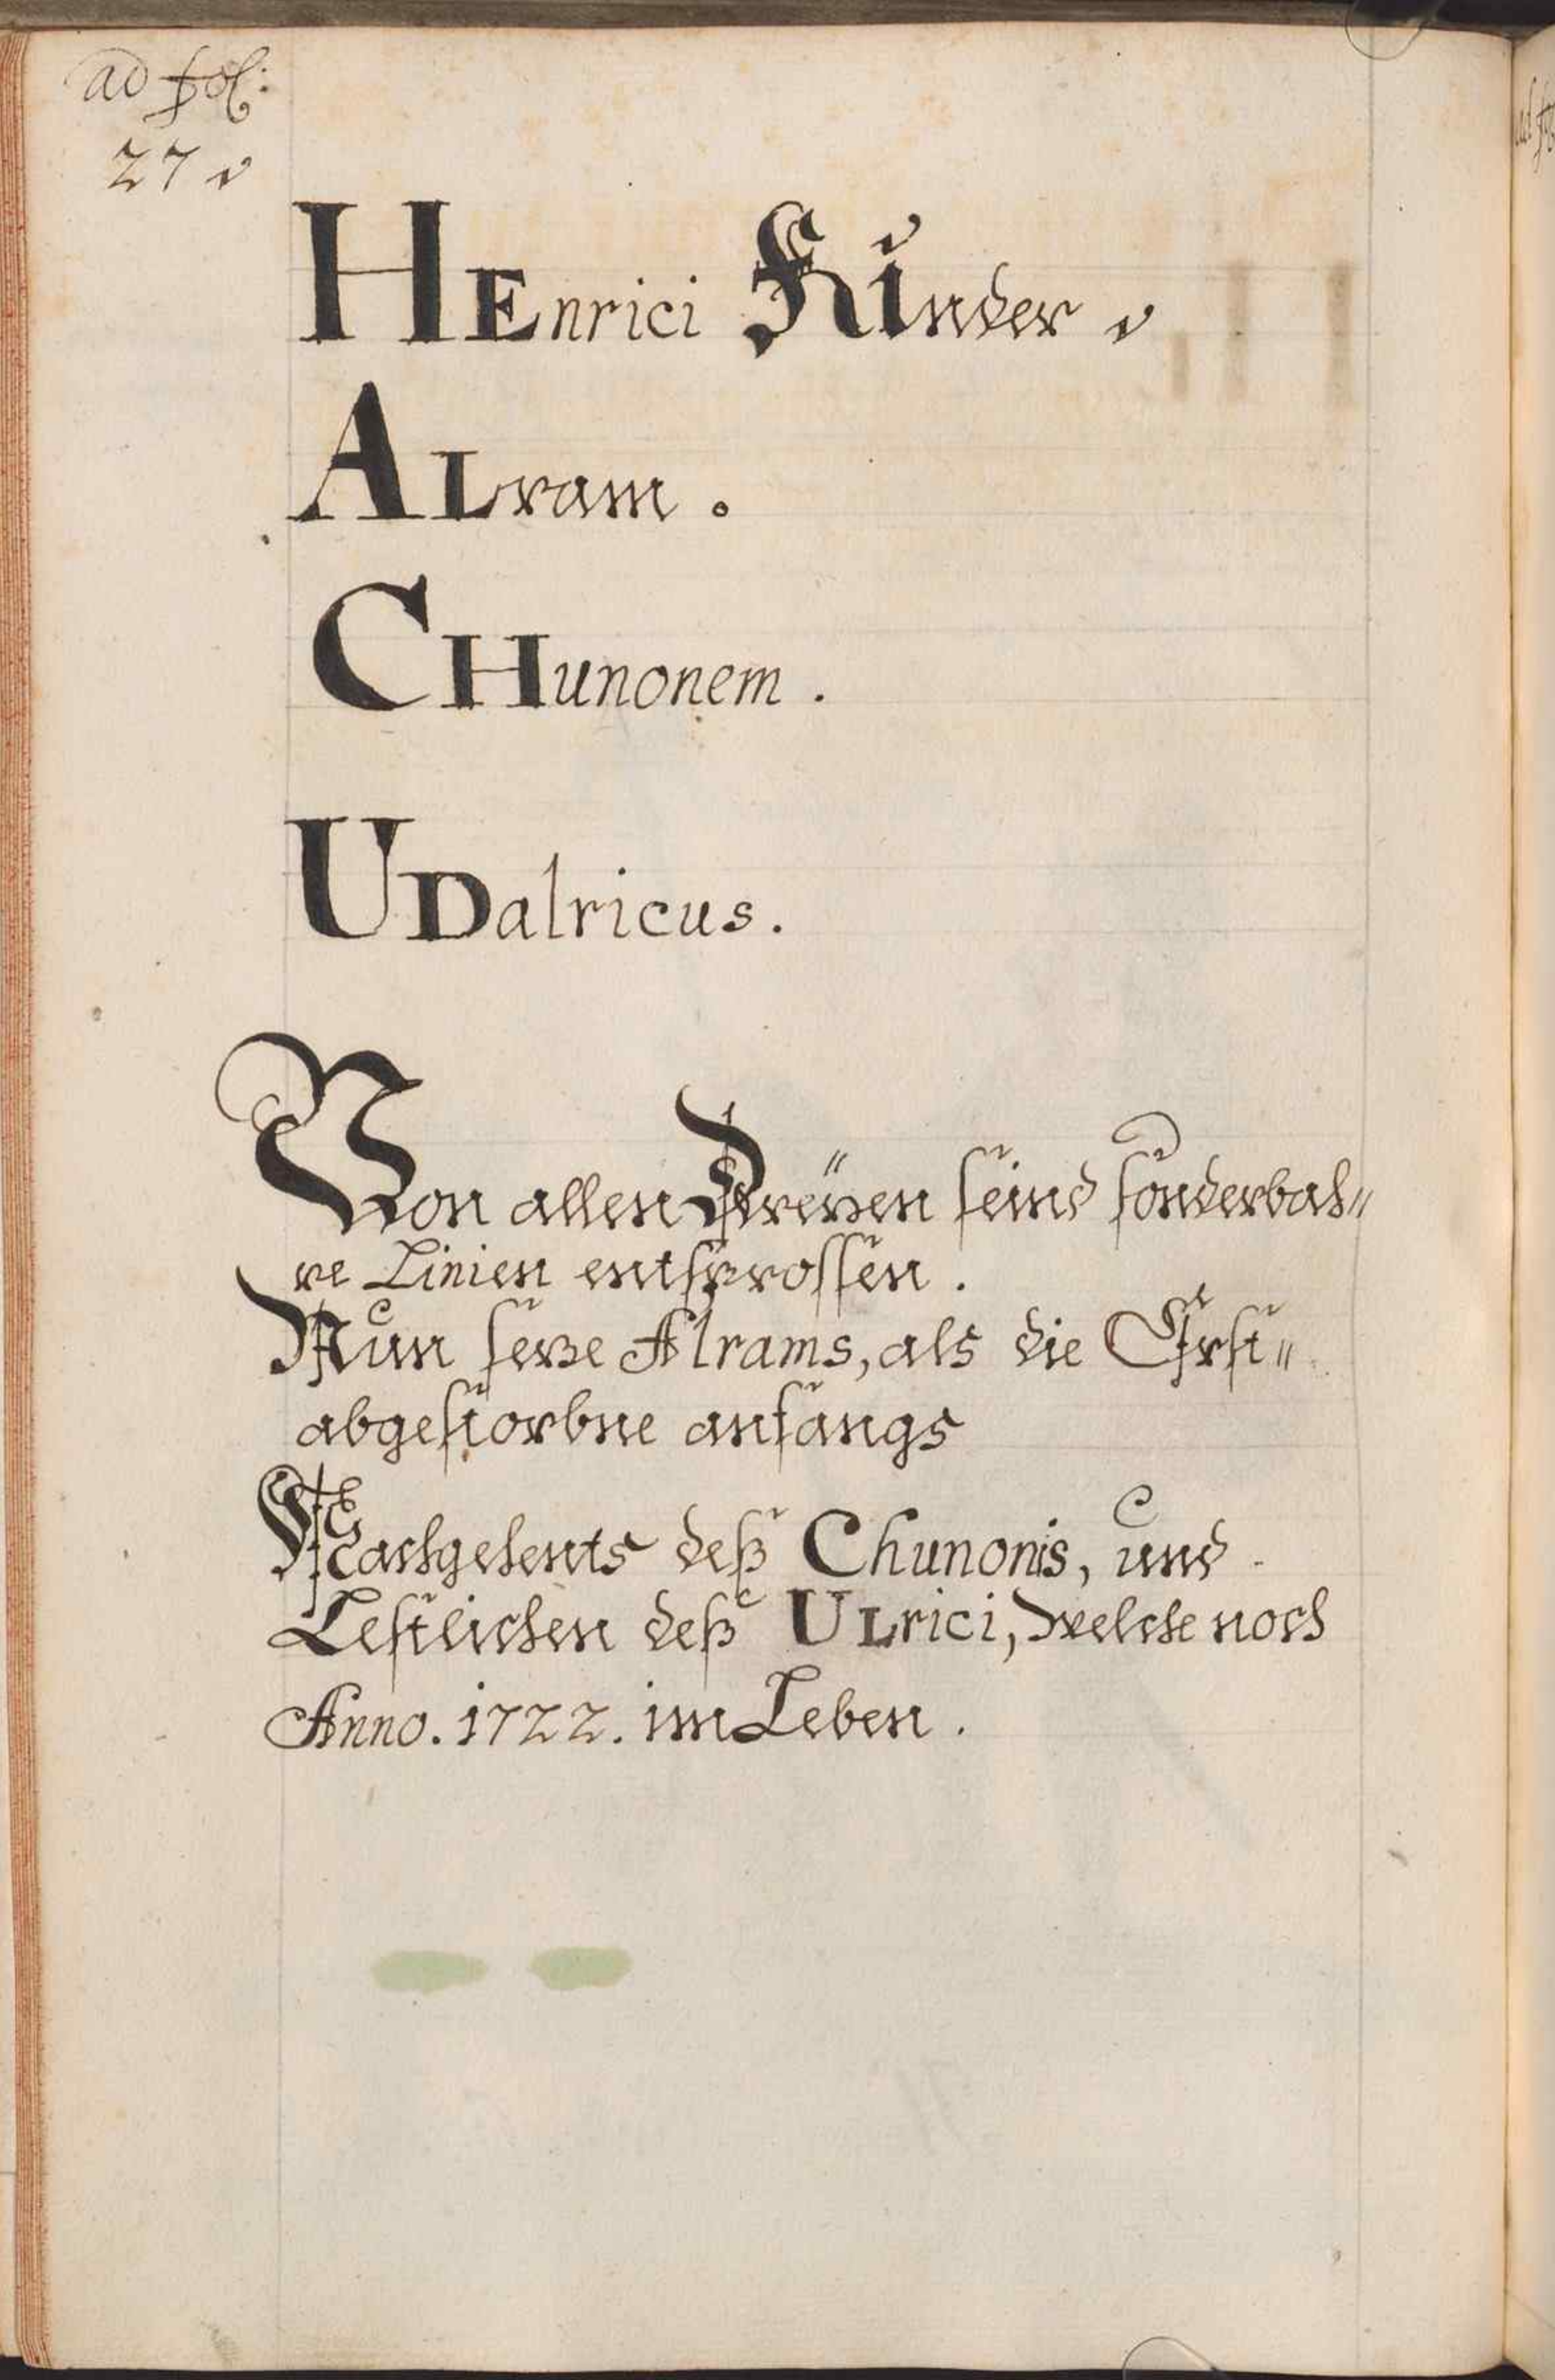 ad fol:
27
HEnrici Kinder
ALram.
CHunonem.
UDalricus.
Von allen Dreÿen seind sonderbah"
re Linien entsprossen.
Nun seze Alrams, als die Erst"
abgestorbne anfangs
Nachgehents deß Chunonis, und
Lestlichen deß ULrici, Welche noch
Anno. 1722. im Leben.